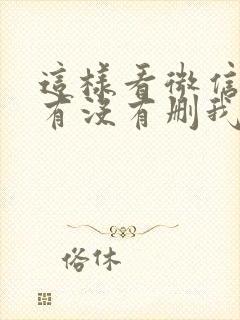 這樣看微信
有沒有刪我
俗休